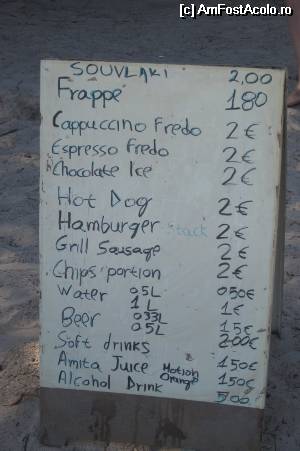 (c) AmFostAcolo.ro
SOUVLAKI 2,00
Frappe 180
Cappuccino Fredo 2€
Espresso Fredo 2€
Chocolate Ice 2€
Hot Dog 2€
Hamburger 2€
Grill Sausage 2€
Chips portion 2€
Water 0.5L 050€
1L 1€
Beer 0.33L 1.5€
0.5L 2.00€
Soft drinks 150€
Amita Juice Motion Orange 150€
Alcohol Drink 500